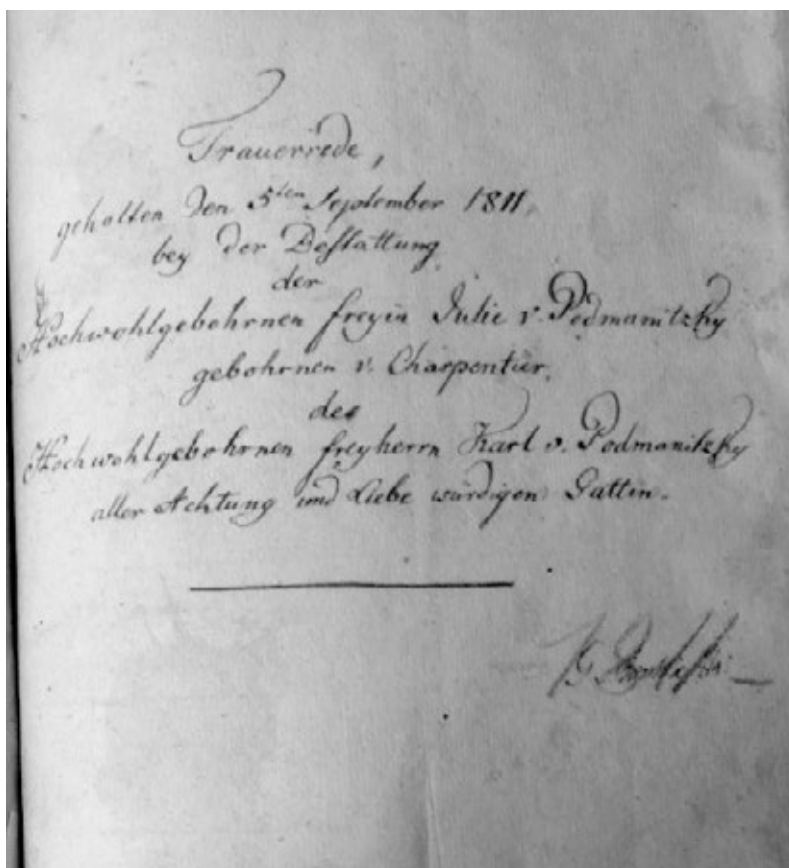 Trauerrede,
gehalten den 5ten September 1811.
bey der Bestattung
der
Hochwohlgebohrnen freyin Julie v. Podmanitzky
gebohrnen v. Charpentier.
des
Hochwohlgebohrnen freyherrn Karl v. Podmanitzky
aller Achtung und Liebe würdigen Gattin.